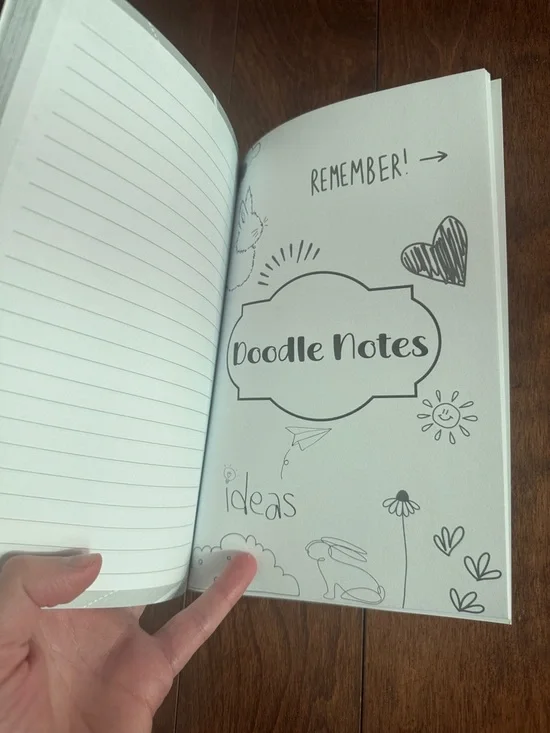 REMEMBER! →
Doodle Notes
ideas